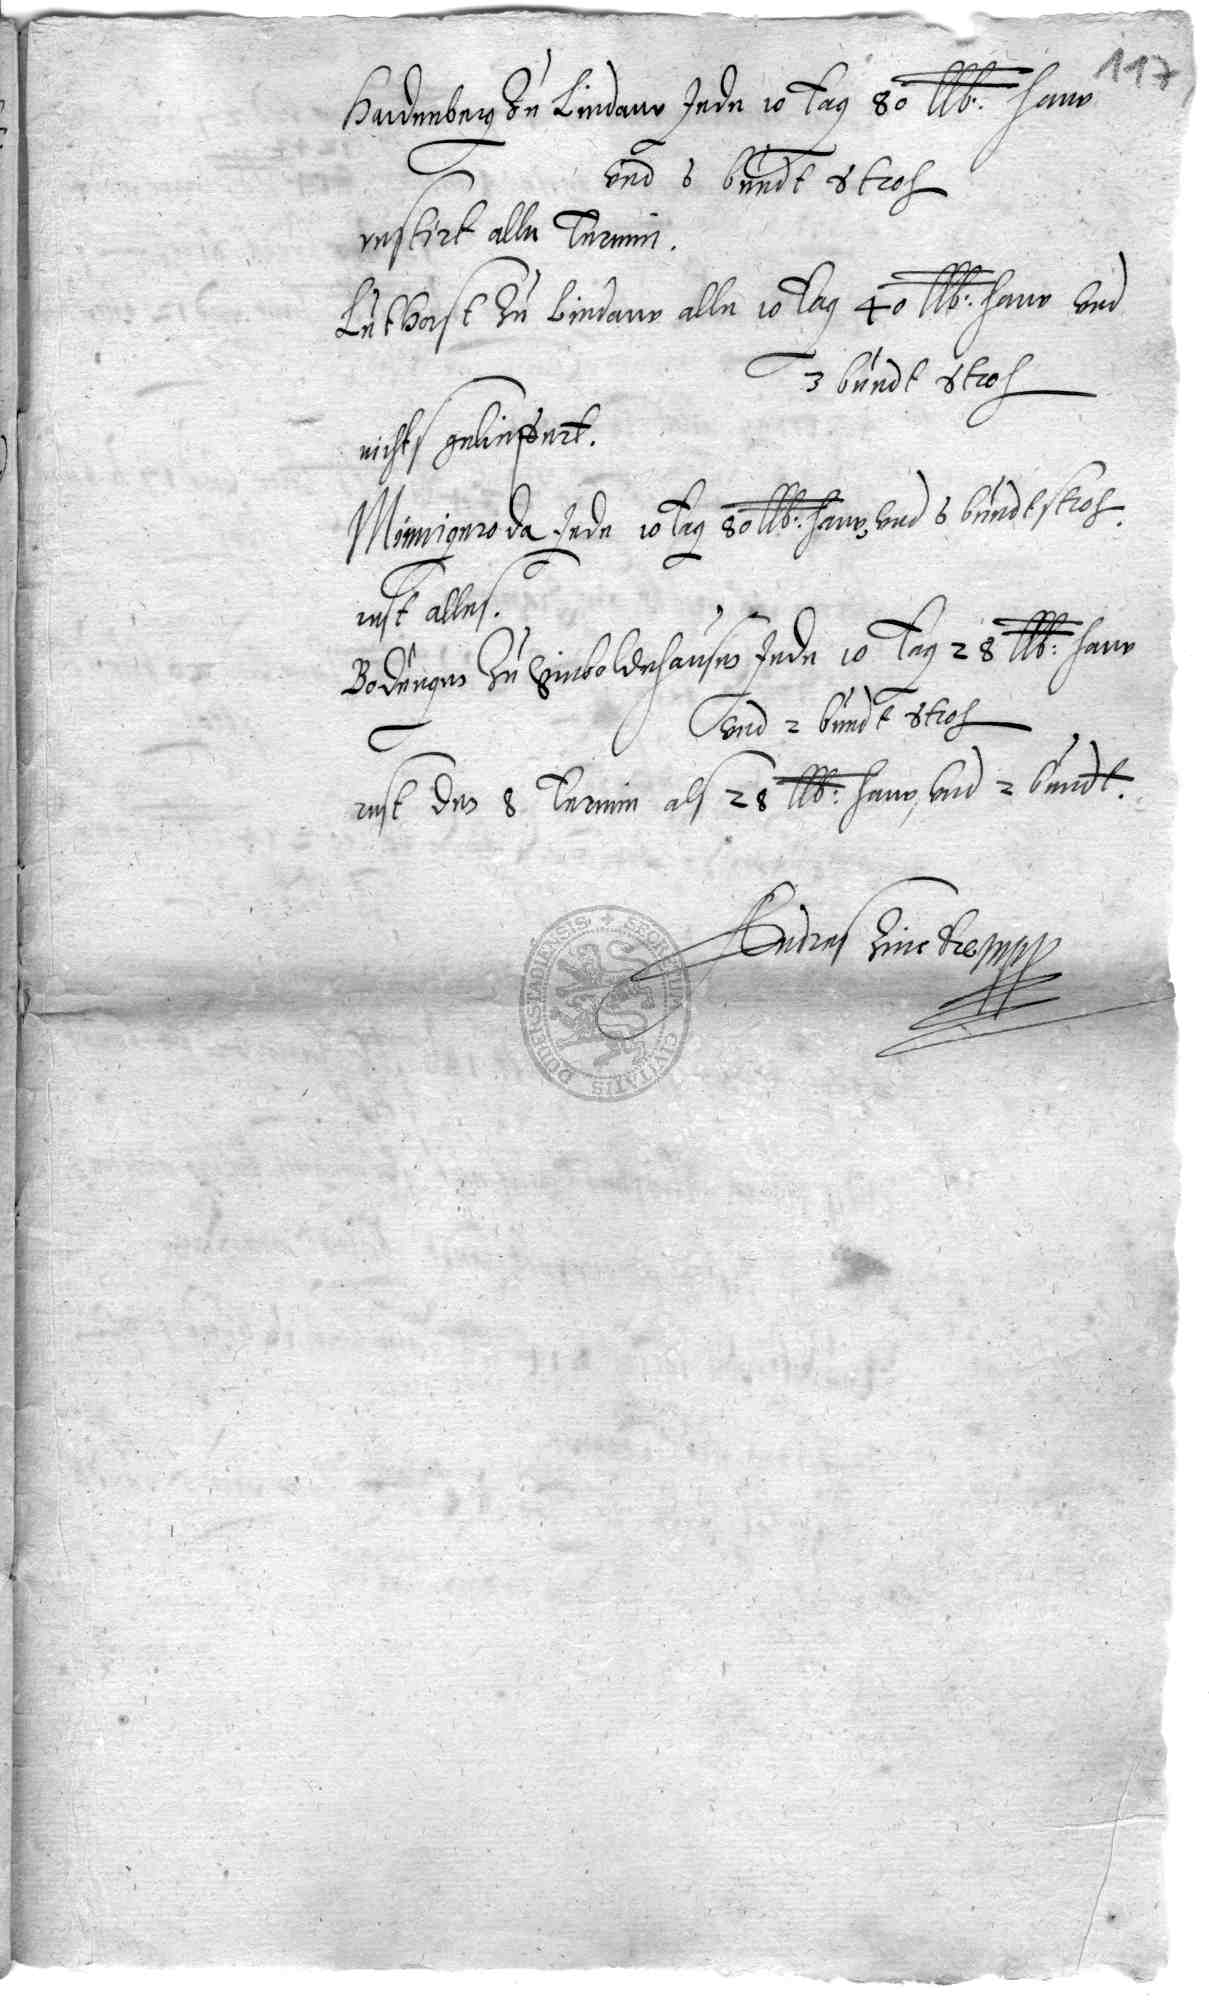 117
Hardenberg Zu Lindaw Jede 10 Tag 80 lb: haw
vnd 6 bundt stroh
restirt alle Termin.
Luthorst Zu Lindaw alle 10 Tag 40 lb: haw vnd
3 bundt stroh
nichts geliefert.
Minnigeroda Jede 10 Tag 80 lb: haw, vnd 6 bundt stroh.
rest alles.
Bodungen Zu Gieboldehausen Jede 10 Tag 28 lb: haw
vnd 2 bundt stroh
rest den 8 Termin als 28 lb: haw, vnd 2 bundt.
Andres
SECRETUM CIVITATIS DUDERSTADIENSIS